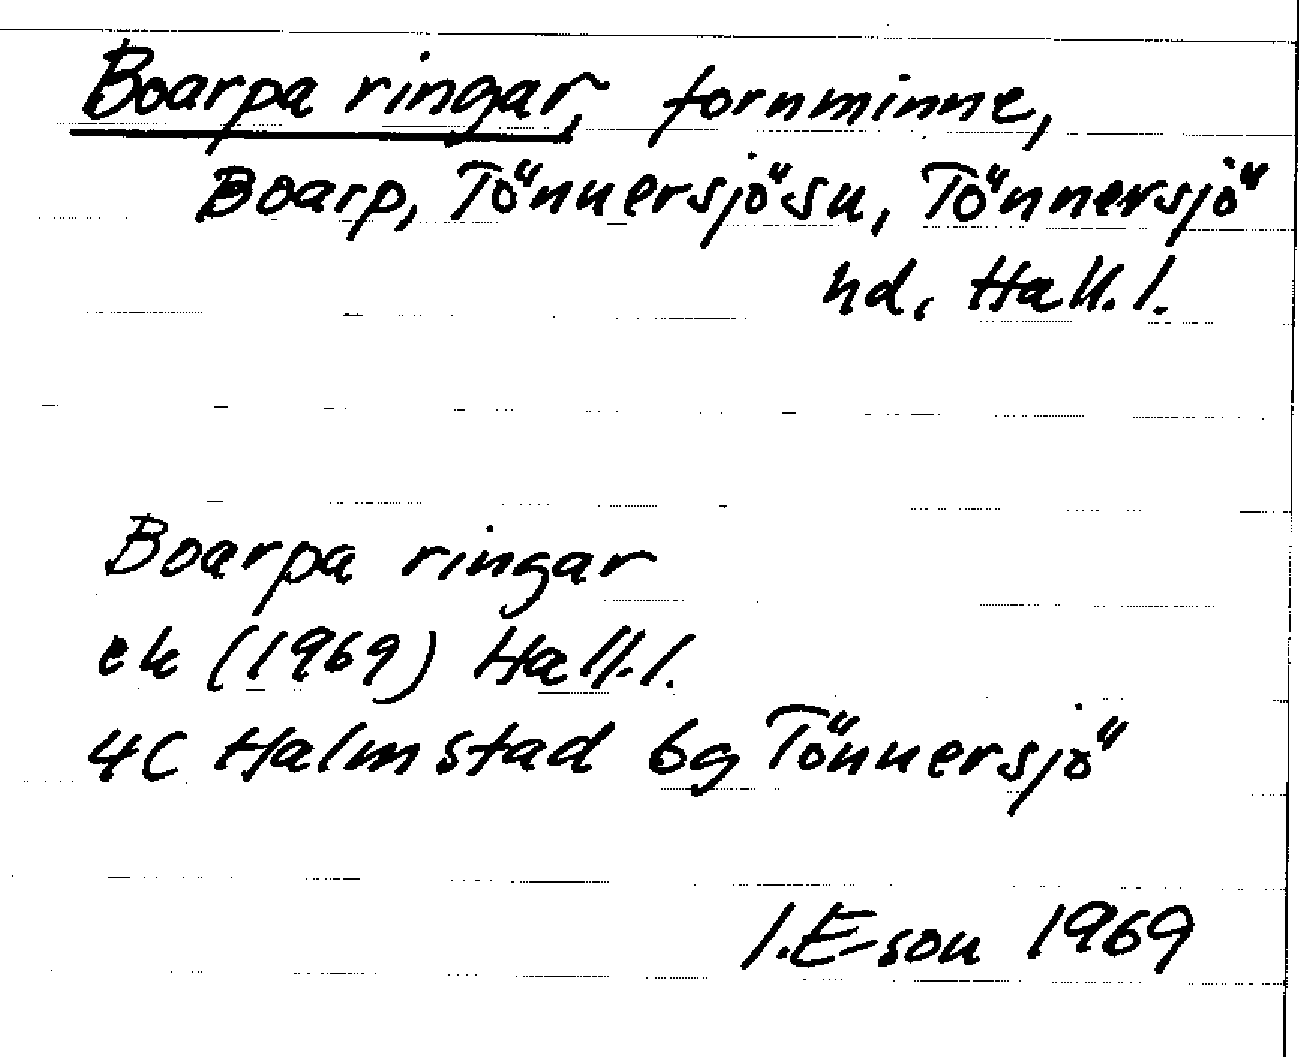 Boarpa ringar, fornminne,
Boarp, Tönnersjö sn, Tönnersjö
hd, Hall. l.
Boarpa ringar
ek (1969) Hall. l.
4C Halmstad 6g Tönnersjö
I. E-son 1969